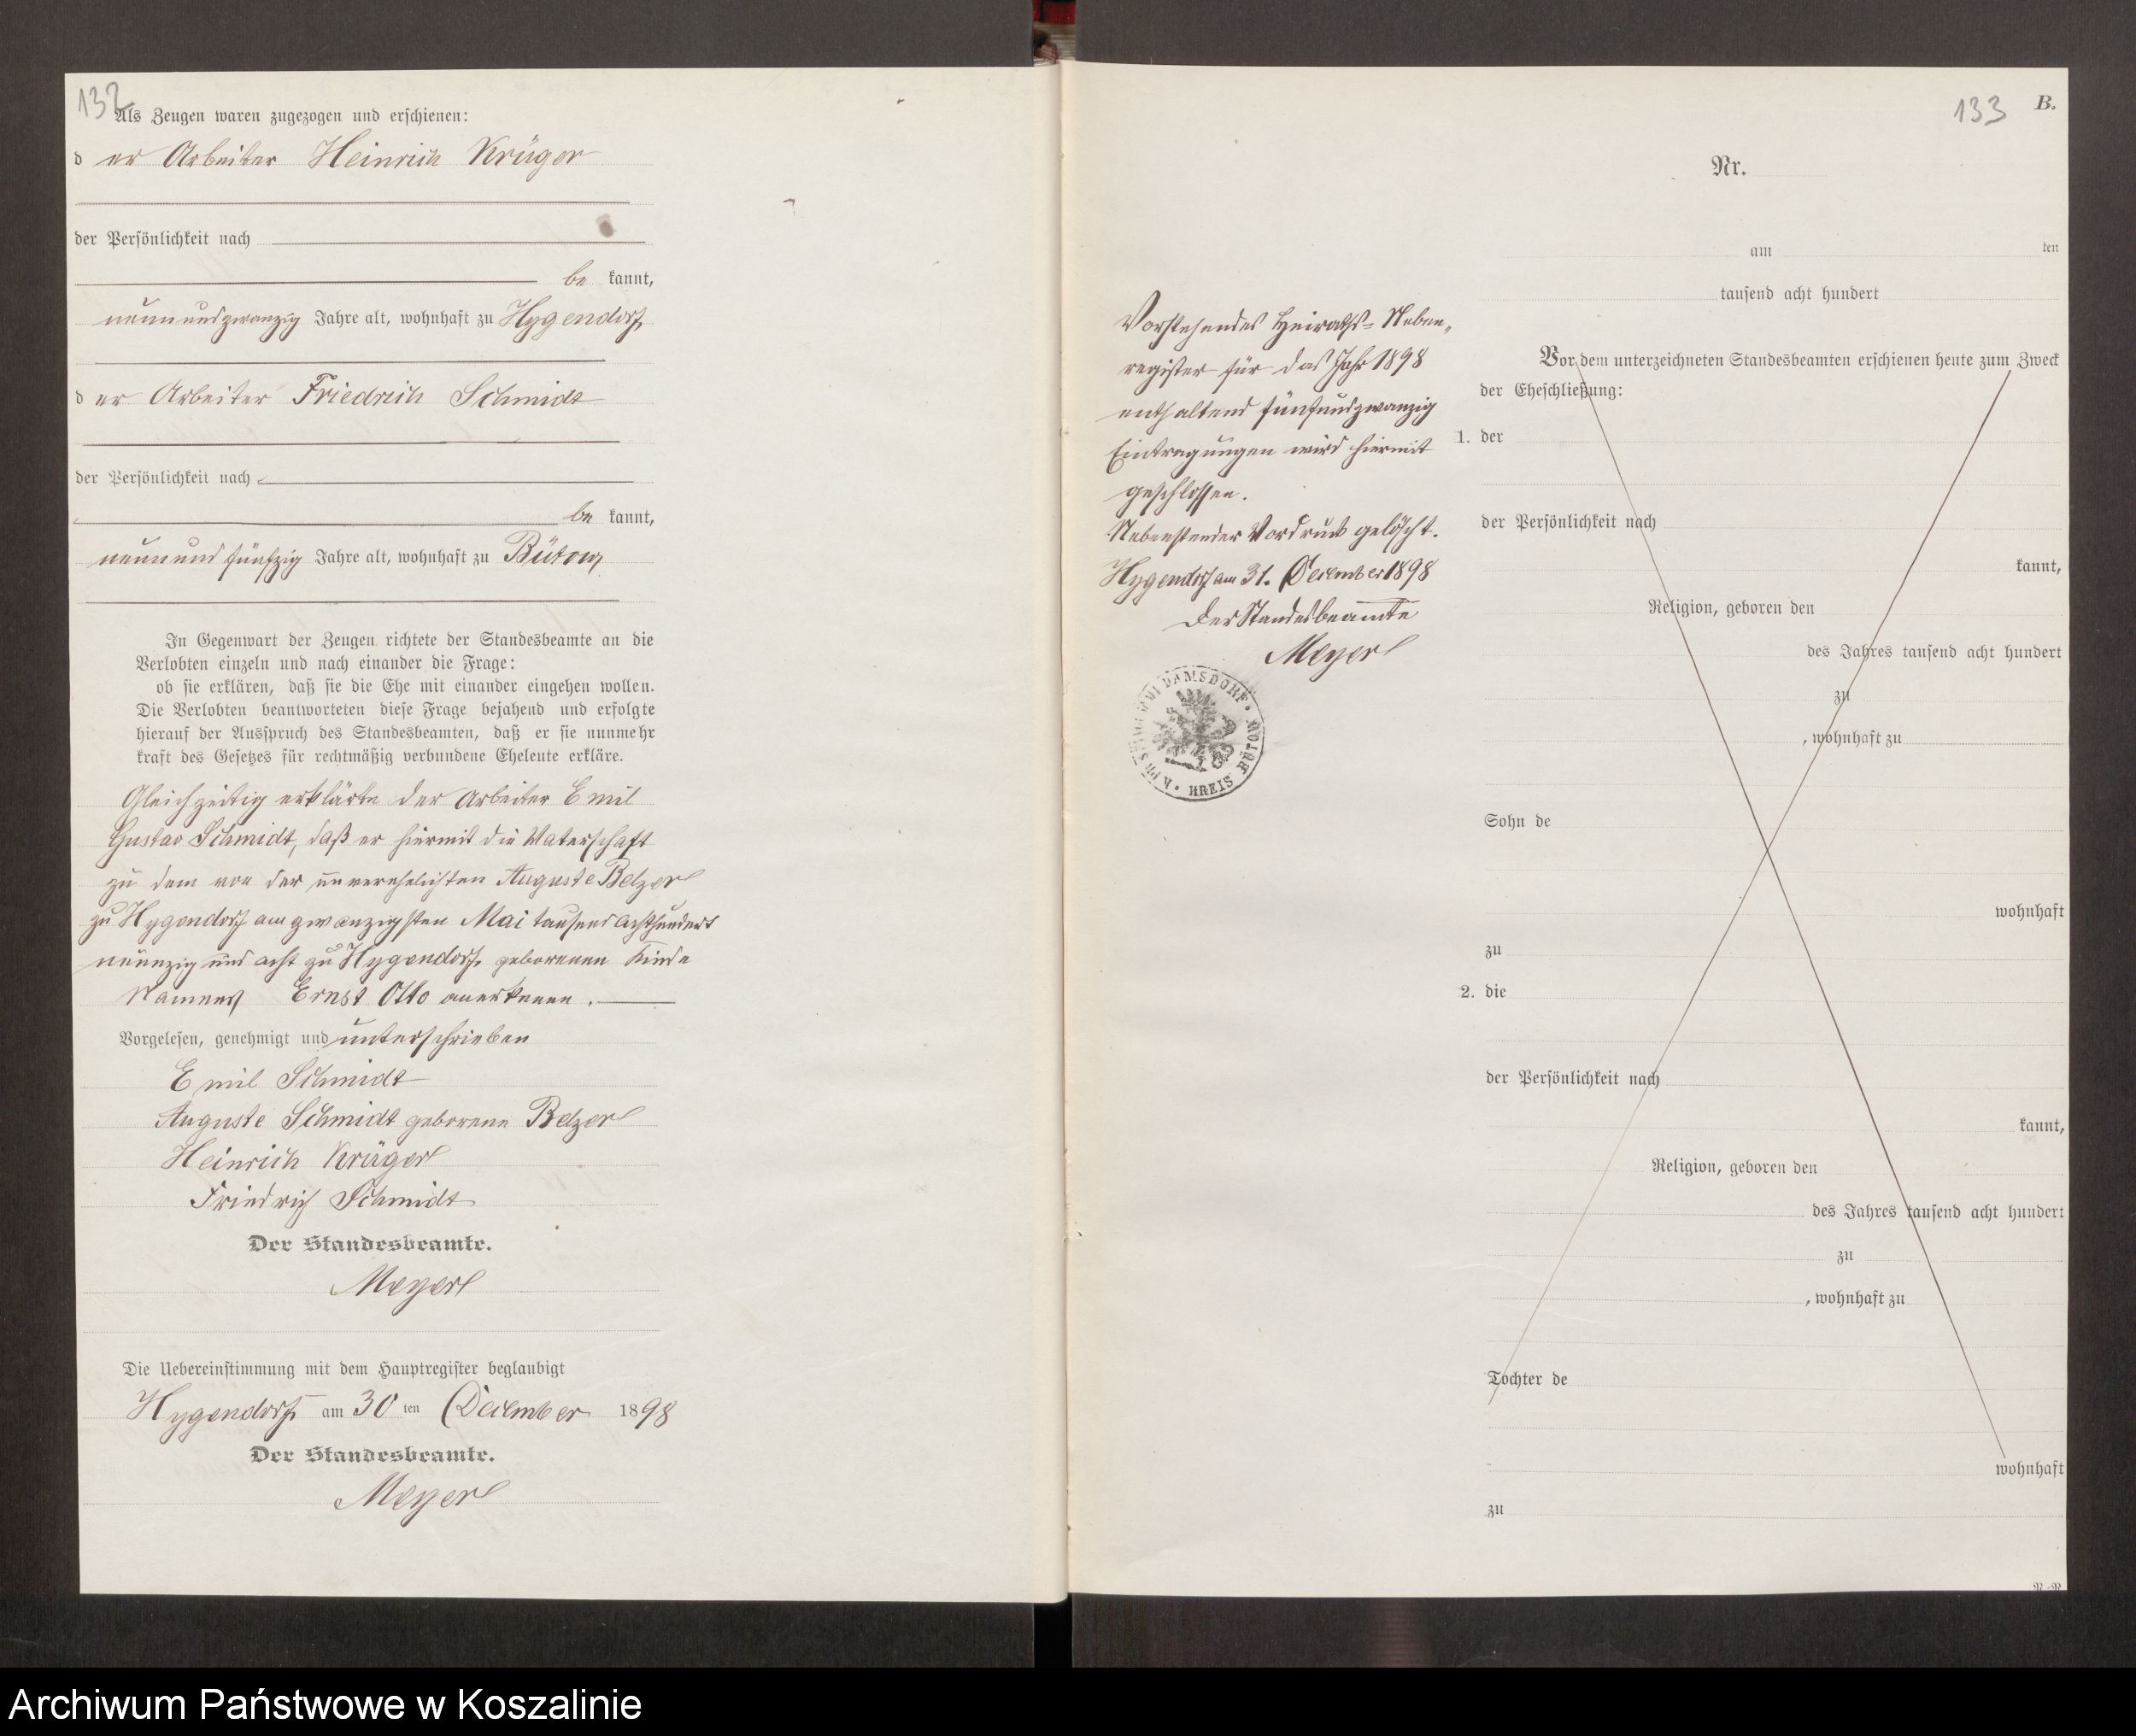 132
Als Zeugen waren zugezogen und erschienen:
der Arbeiter Heinrich Krüger
der Persönlichkeit nach
be kannt,
neunundzwanzig Jahre alt, wohnhaft zu Hygendorf
der Arbeiter Friedrich Schmidt
der Persönlichkeit nach
be kannt,
neunundfünfzig Jahre alt, wohnhaft zu Bütow
In Gegenwart der Zeugen richtete der Standesbeamte an die
Verlobten einzeln und nach einander die Frage:
ob sie erklären, daß sie die Ehe mit einander eingehen wollen.
Die Verlobten beantworteten diese Frage bejahend und erfolgte
hierauf der Ausspruch des Standesbeamten, daß er sie nunmehr
kraft des Gesetzes für rechtmäßig verbundene Eheleute erkläre.
Gleichzeitig erklärte der Arbeiter Emil
Gustav Schmidt, daß er hiermit die Vaterschaft
zu dem von der unverehelichten Auguste Belzer
zu Hygendorf am zwanzigsten Mai tausend achthundert
neunzig und acht zu Hygendorf geborenen Kinde
Namens Ernst Otto anerkenne.
Vorgelesen, genehmigt und unterschrieben
Emil Schmidt
Auguste Schmidt geborene Belzer
Heinrich Krüger
Friedrich Schmidt
Der Standesbeamte.
Meyer
Die Uebereinstimmung mit dem Hauptregister beglaubigt
Hygendorf am 30ten December 1898
Der Standesbeamte.
Meyer
133 B.
Vorstehendes Heiraths-Neben-
register für das Jahr 1898
enthaltend fünfundzwanzig
Eintragungen wird hiermit
geschlossen.
Nebenstender Vordruck gelöscht.
Hygendorf am 31. December 1898
Der Standesbeamte
Meyer
DAMSDORF · KREIS BÜTOW
Nr.
am ten
tausend acht hundert
Vor dem unterzeichneten Standesbeamten erschienen heute zum Zweck
der Eheschließung:
1. der
der Persönlichkeit nach
kannt,
Religion, geboren den
des Jahres tausend acht hundert
zu
, wohnhaft zu
Sohn de
wohnhaft
zu
2. die
der Persönlichkeit nach
kannt,
Religion, geboren den
des Jahres tausend acht hundert
zu
, wohnhaft zu
Tochter de
wohnhaft
zu
Archiwum Państwowe w Koszalinie